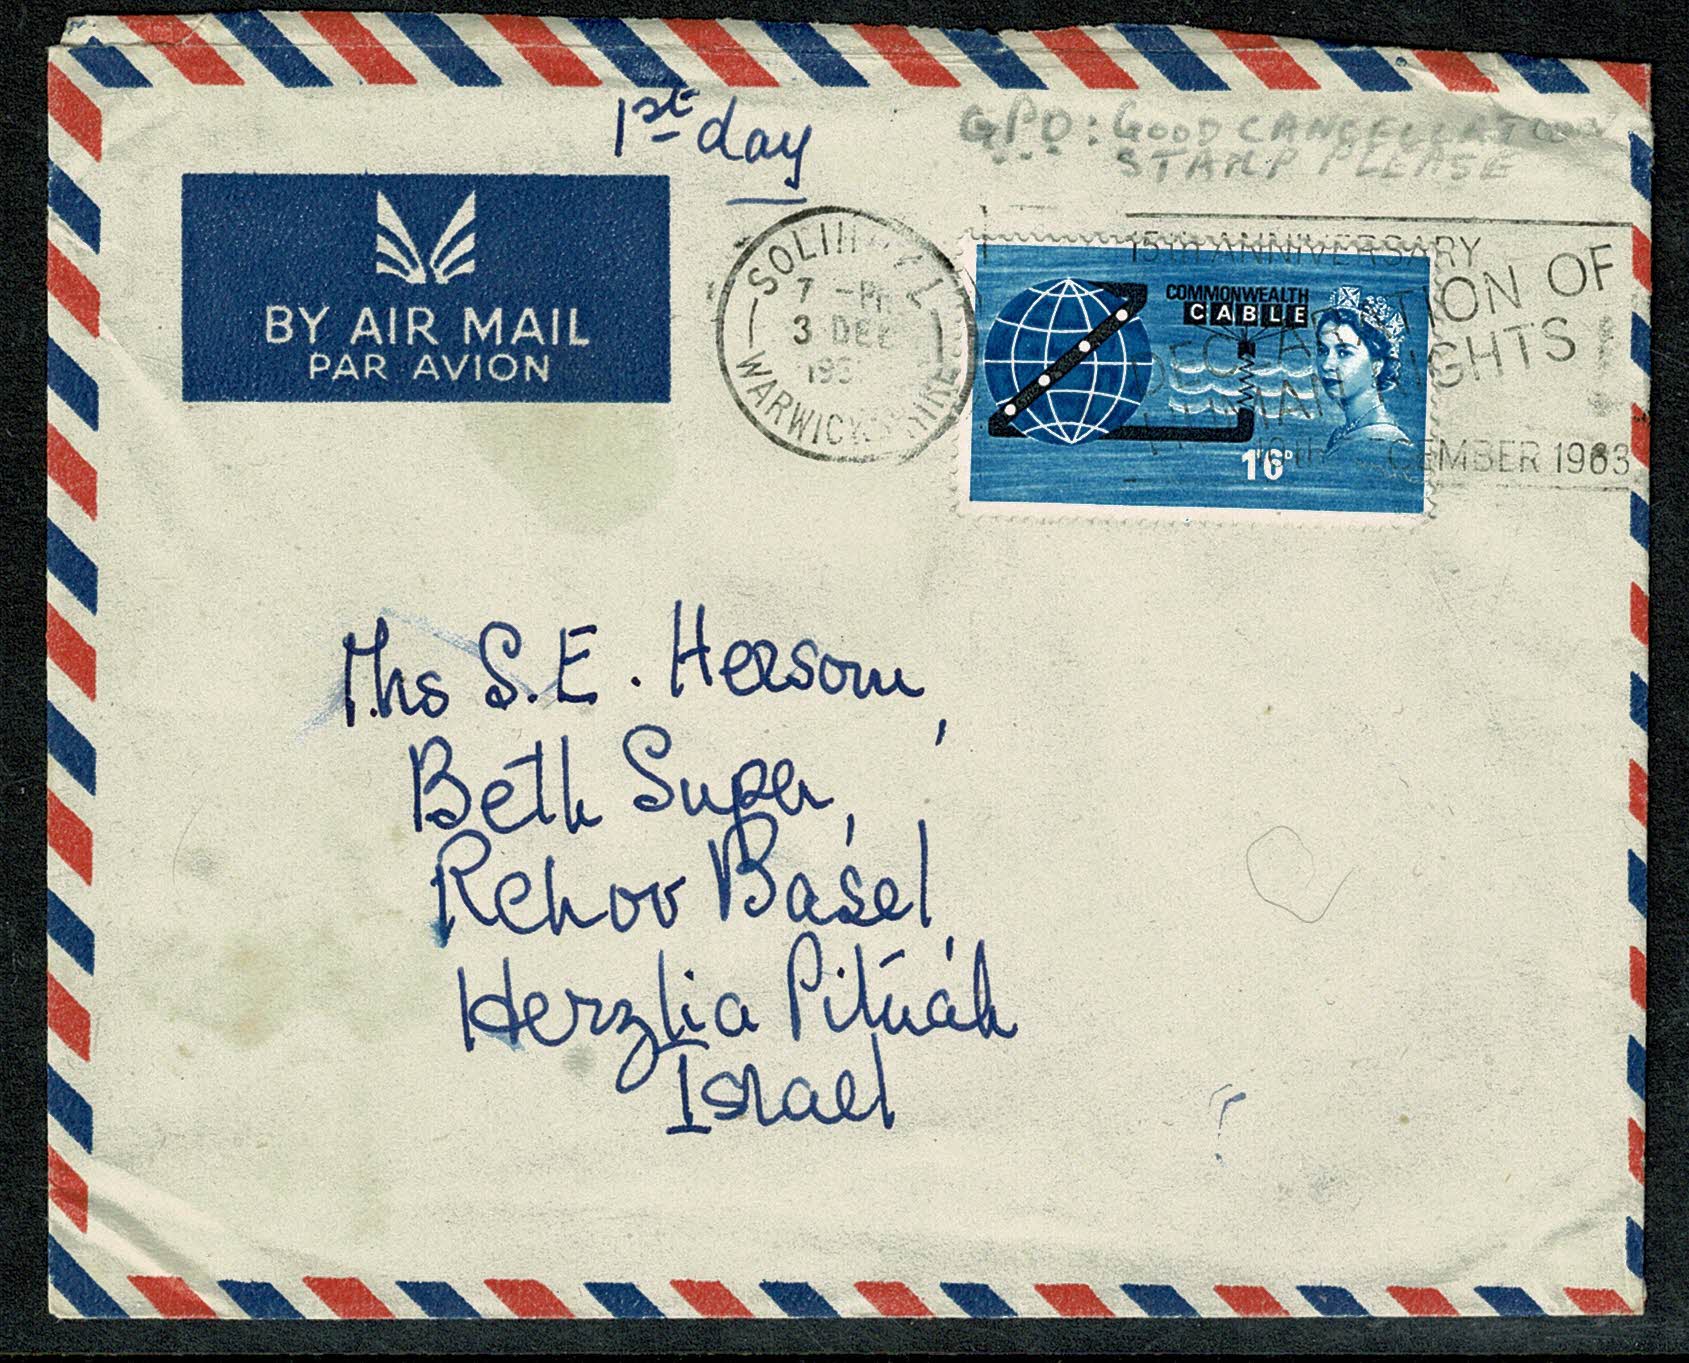 1st day
GPO: GOOD CANCELLATION
STAMP PLEASE
BY AIR MAIL
PAR AVION
SOLIHULL
7 - PM
3 DEC
196
WARWICKSHIRE
15th ANNIVERSARY
DECLARATION OF
HUMAN RIGHTS
10th DECEMBER 1963
COMMONWEALTH
CABLE
1'6D
Mrs S.E. Hersom,
Beth Super,
Rehov Basel,
Herzlia Pituah
Israel